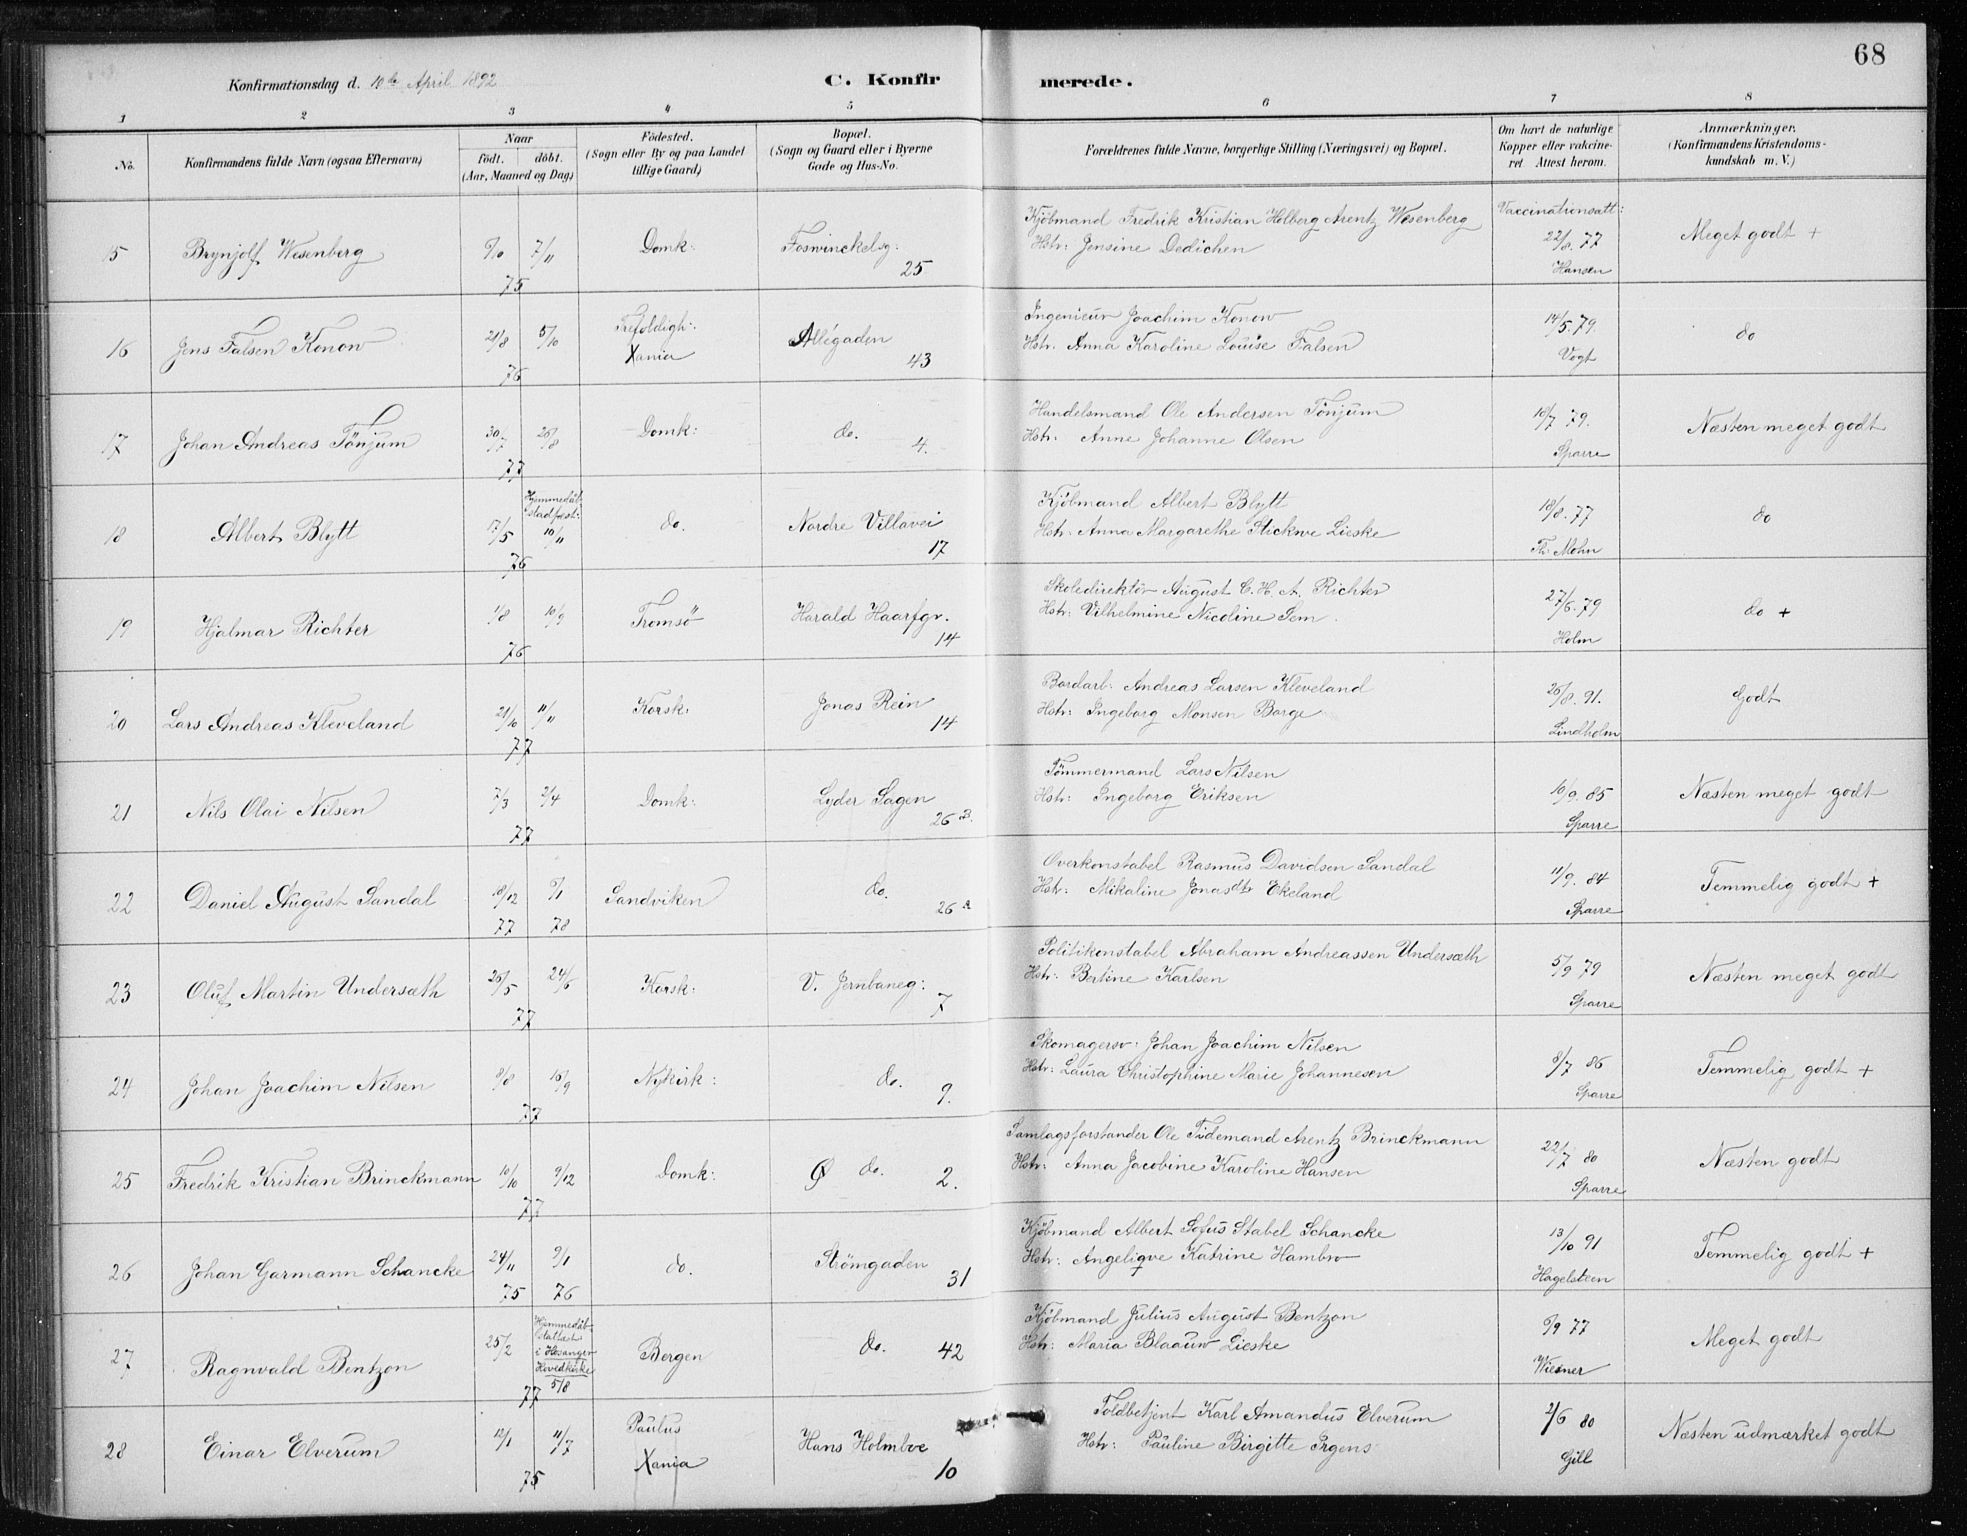 68
Konfirmationsdag d. 10de April 1892
C. Konfirmerede.
1 2 3 4 5 6 7 8
No.
Konfirmandens fulde Navn (ogsaa Efternavn)
Naar
födt. döbt.
(Aar, Maaned og Dag)
Födested.
(Sogn eller By og paa Landet
tillige Gaard)
Bopæl.
(Sogn og Gaard eller i Byerne
Gade og Hus-No.
Forældrenes fulde Navne, borgerlige Stilling (Næringsvei) og Bopæl.
Om havt de naturlige
Kopper eller vakcine-
ret. Attest herom.
Anmærkninger.
(Konfirmandens Kristendoms-
kundskab m. V.)
Kjöbmand Fredrik Kristian Holberg Arentz Wesenberg Vaccinationsatt:
15 Brynjolf Wesenberg 6/10 7/11 Domk: Fosvinckelsg: Hstr: Jensine Dedichen 22/8. 77 Meget godt +
75 25 Hansen
Ingenieur Joachim Konow
16 Jens Falsen Konow 21/8 5/10 Trefoldigh: Allégaden Hstr. Anna Karoline Louise Falsen 14/5. 79. do
76 Xania 43 Vogt
Handelsmand Ole Andersen Tönjum
17 Johan Andreas Tönjum 30/7 26/8 Domk: do. Hstr: Anne Johanne Olsen 10/7 79. Næsten meget godt
77 4. Sparre
Hjemmedåb
stadfæst: Kjöbmand Albert Blytt
18 Albert Blytt 17/5 10/11 do. Nordre Villavei Hstr: Anna Margarethe Stickwe Lieske 18/8. 77 do
76 17 Th: Mohn
Skoledirektör August C. H. A. Richter
19 Hjalmar Richter 1/8 10/9 Tromsö Harald Haarfgr. Hstr: Vilhelmine Nicoline Jem. 27/6. 79 do +
76 14 Holm
Bordarb: Andreas Larsen Kleveland
20 Lars Andreas Kleveland 21/10 11/11 Korsk: Jonas Rein Hstr: Ingeborg Monsen Borge 26/8. 91. Godt
77 14 Lindholm
Tömmermand Lars Nilsen
21 Nils Olai Nilsen 7/3 2/4 Domk: Lyder Sagen Hstr: Ingeborg Eriksen 10/9. 85 Næsten meget godt
77 26 B. Sparre
Overkonstabel Rasmus Davidsen Sandal
22 Daniel August Sandal 18/12 6/1 Sandviken do. Hstr: Mikaline Jonasdtr Ekeland 11/9. 84 Temmelig godt +
77 78 26 A Sparre
Politikonstabel Abraham Andreassen Undersæth
23 Oluf Martin Undersæth 26/5 24/6 Korsk: V. Jernbaneg: Hstr: Bertine Karlsen 5/9 79 Næsten meget godt
77 7 Sparre
Skomagersv: Johan Joachim Nilsen
24 Johan Joachim Nilsen 8/8 16/9 Nykirk: do. Hstr: Laura Christophine Marie Johannesen 9/7 86 Temmelig godt +
77 9. Sparre
Samlagsforstander Ole Tidemand Arentz Brinckmann
25 Fredrik Kristian Brinckmann 10/10 9/12 Domk: Ø do. 2. Hstr: Anna Jacobine Karoline Hansen 22/7 80 Næsten godt
77 Sparre
Kjöbmand Albert Sofus Stabel Schancke
26 Johan Garmann Schancke 24/11 9/1 do. Strömgaden Hstr: Angelique Katrine Hambro 13/10 91 Temmelig godt +
75 76 31 Hagelsteen
Hjemmedåb
Kjöbmand Julius August Bentzon
27 Ragnvald Bentzon 25/2 i Hosanger Hovedkirke Bergen do. 42 Hstr: Maria Blaauw Lieske 6/9 77 Meget godt
77 5/8 Wiesner
Toldbetjent Karl Amandus Elverum
28 Einar Elverum 12/1 11/7 Paulus Hans Holmboe Hstr: Pauline Birgitte Irgens 2/6 80 Næsten udmærket godt
75 Xania 10 Gill